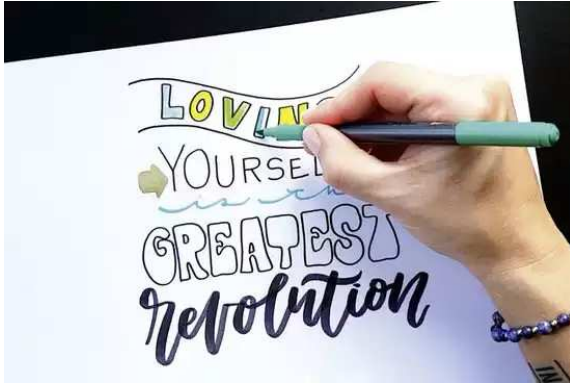 LOVING
YOURSEL
is the
GREATEST
revolution
IN